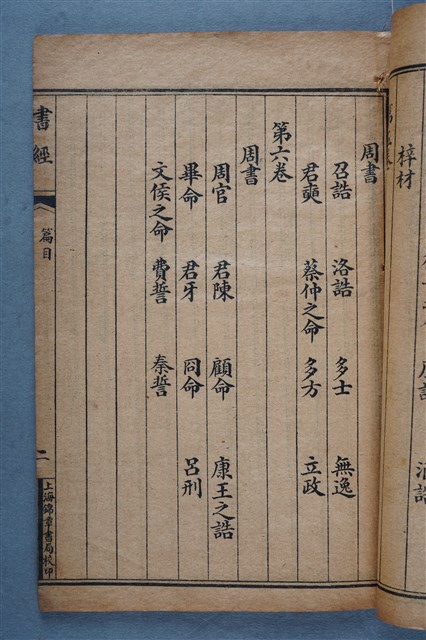 梓材
周書
召誥 洛誥 多士 無逸
君奭 蔡仲之命 多方 立政
第六卷
周書
周官 君陳 顧命 康王之誥
畢命 君牙 冏命 呂刑
文侯之命 費誓 秦誓
書經
篇目
二
上海錦章書局校印